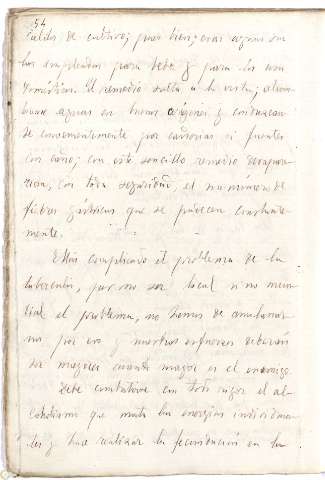 54
caldos de cultivo; pues bien, esas aguas son
las empleadas para bebe y para los usos
domésticos. El remedio salta a la vista, alum
aguas en buenos orígenes y conduzcan
se convenientemente por cañerías a fuentes
con caño; con este sencillo remedio desapare
cerían, con toda seguridad, el número de
fiebres gástricas que se padecen constante-
mente.
Más complicado el problema de la
tuberculosis, por no ser local si no mun
dial el problema, no hemos de
nos por eso y nuestros esfuerzos deberán
ser mayores cuanto mayor es el enemigo.
Debe combatirse con todo rigor el al-
coholismo que mata las energías individua
les y hace realizar la fecundación en la